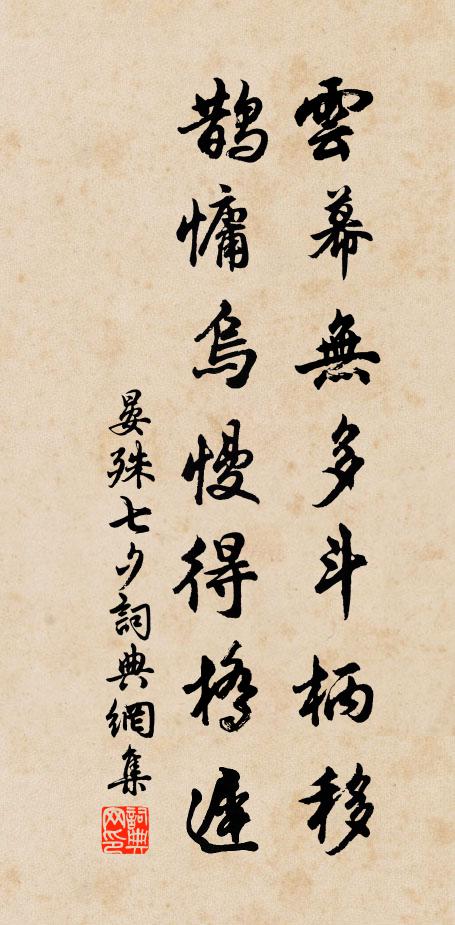 雲幕無多斗柄移
鵲慵烏慢得橋遲
晏殊七夕詞典網集
詞典網印